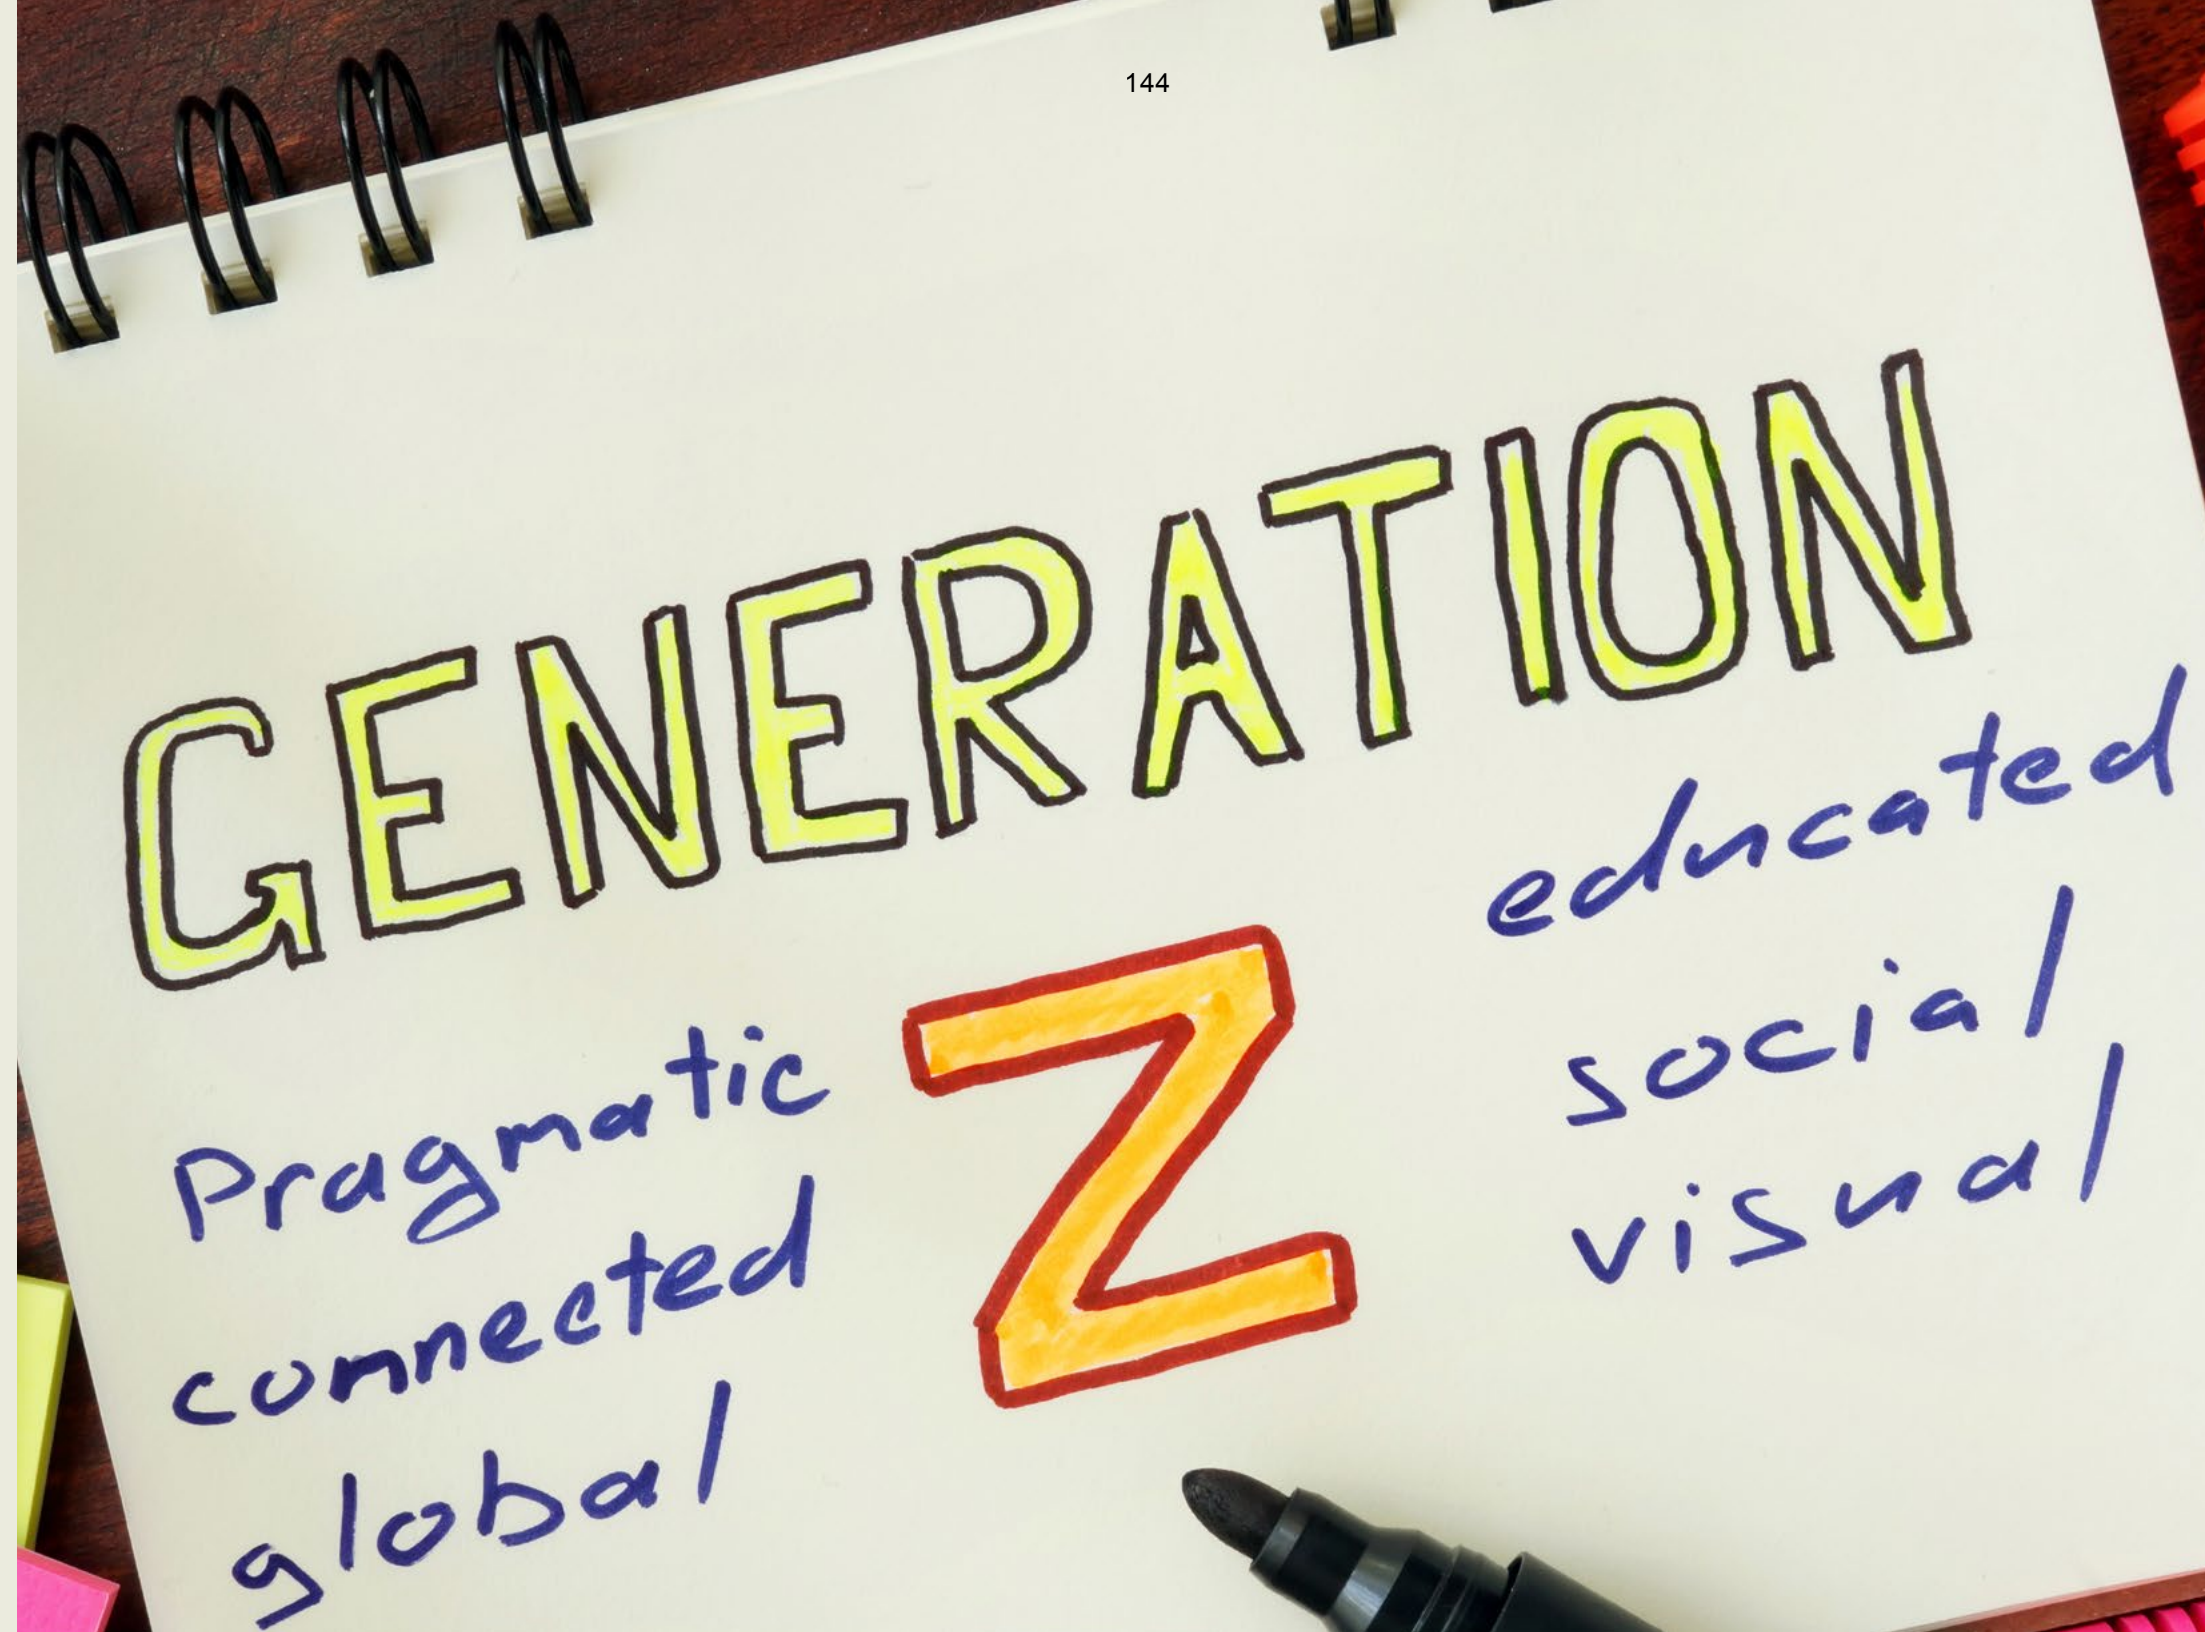 144
GENERATION
Z
Pragmatic
connected
global
educated
social
visual